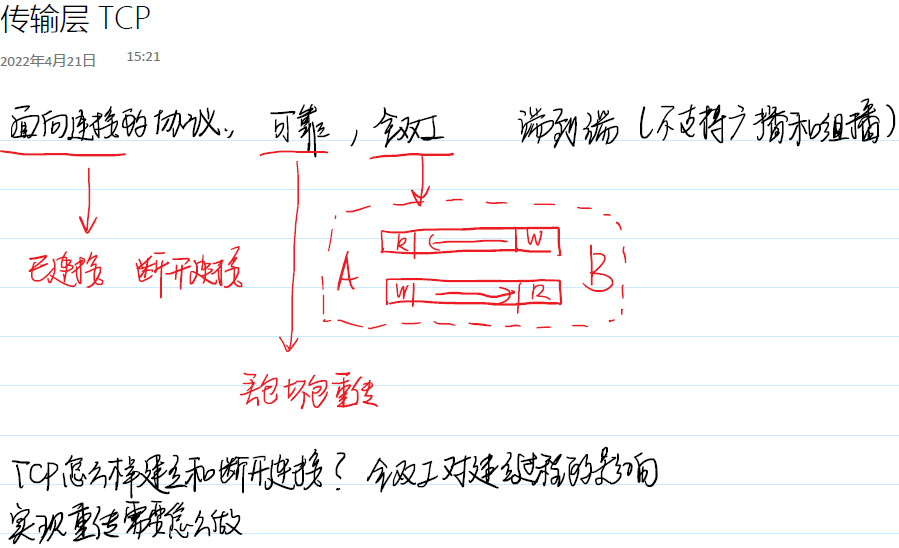 传输层 TCP
2022年4月21日 15:21
面向连接的协议, 可靠, 全双工 端到端 (不支持广播和组播)
R W
连接 断开连接 A B
W R
丢包坏包重传
TCP怎么样建立和断开连接? 全双工对建立过程的影响
实现重传需要怎么做